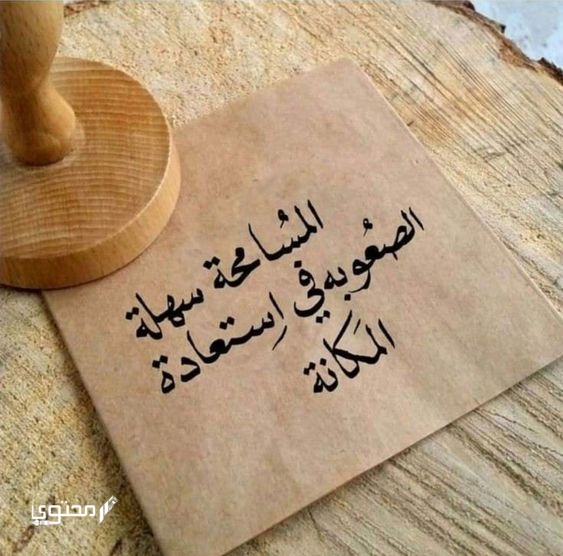 المسُامحة سهلة
الصعُوبه في إستعادة
المَكانة
محتوى